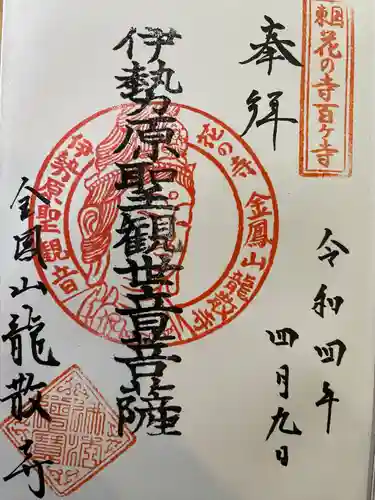 東国花の寺百ヶ寺
奉拝
令和四年
四月九日
伊勢原聖観世音菩薩
花の寺
金鳳山龍散寺
伊勢原聖観音
金鳳山龍散寺